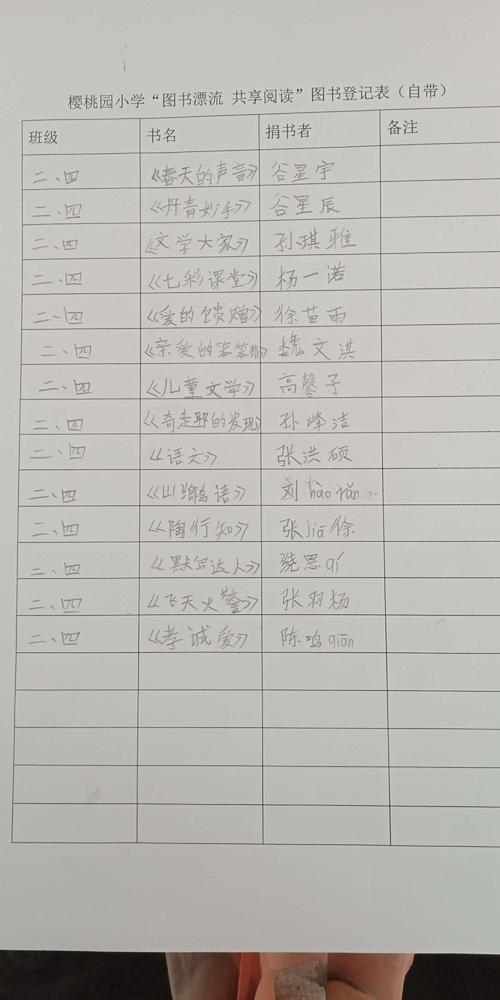 樱桃园小学“图书漂流 共享阅读”图书登记表（自带）
班级 书名 捐书者 备注
二、四 《春天的声音》 谷星宇
二、四 《丹青妙手》 谷星辰
二、四 《文学大家》 孙琪雅
二、四 《七彩课堂》 杨一诺
二、四 《爱的馈赠》 徐苗雨
二、四 《亲爱的笨笨猪》 魏文淇
二、四 《儿童文学》 高馨子
二、四 《奇走耶的发现》 孙烽洁
二、四 《语文》 张洪硕
二、四 《山乡鸟语》 刘hào
二、四 《陶行知》 张jiā徐
二、四 《默写达人》 饶思qí
二、四 《飞天火警》 张羽杨
二、四 《孝诚爱》 陈鸣qiān